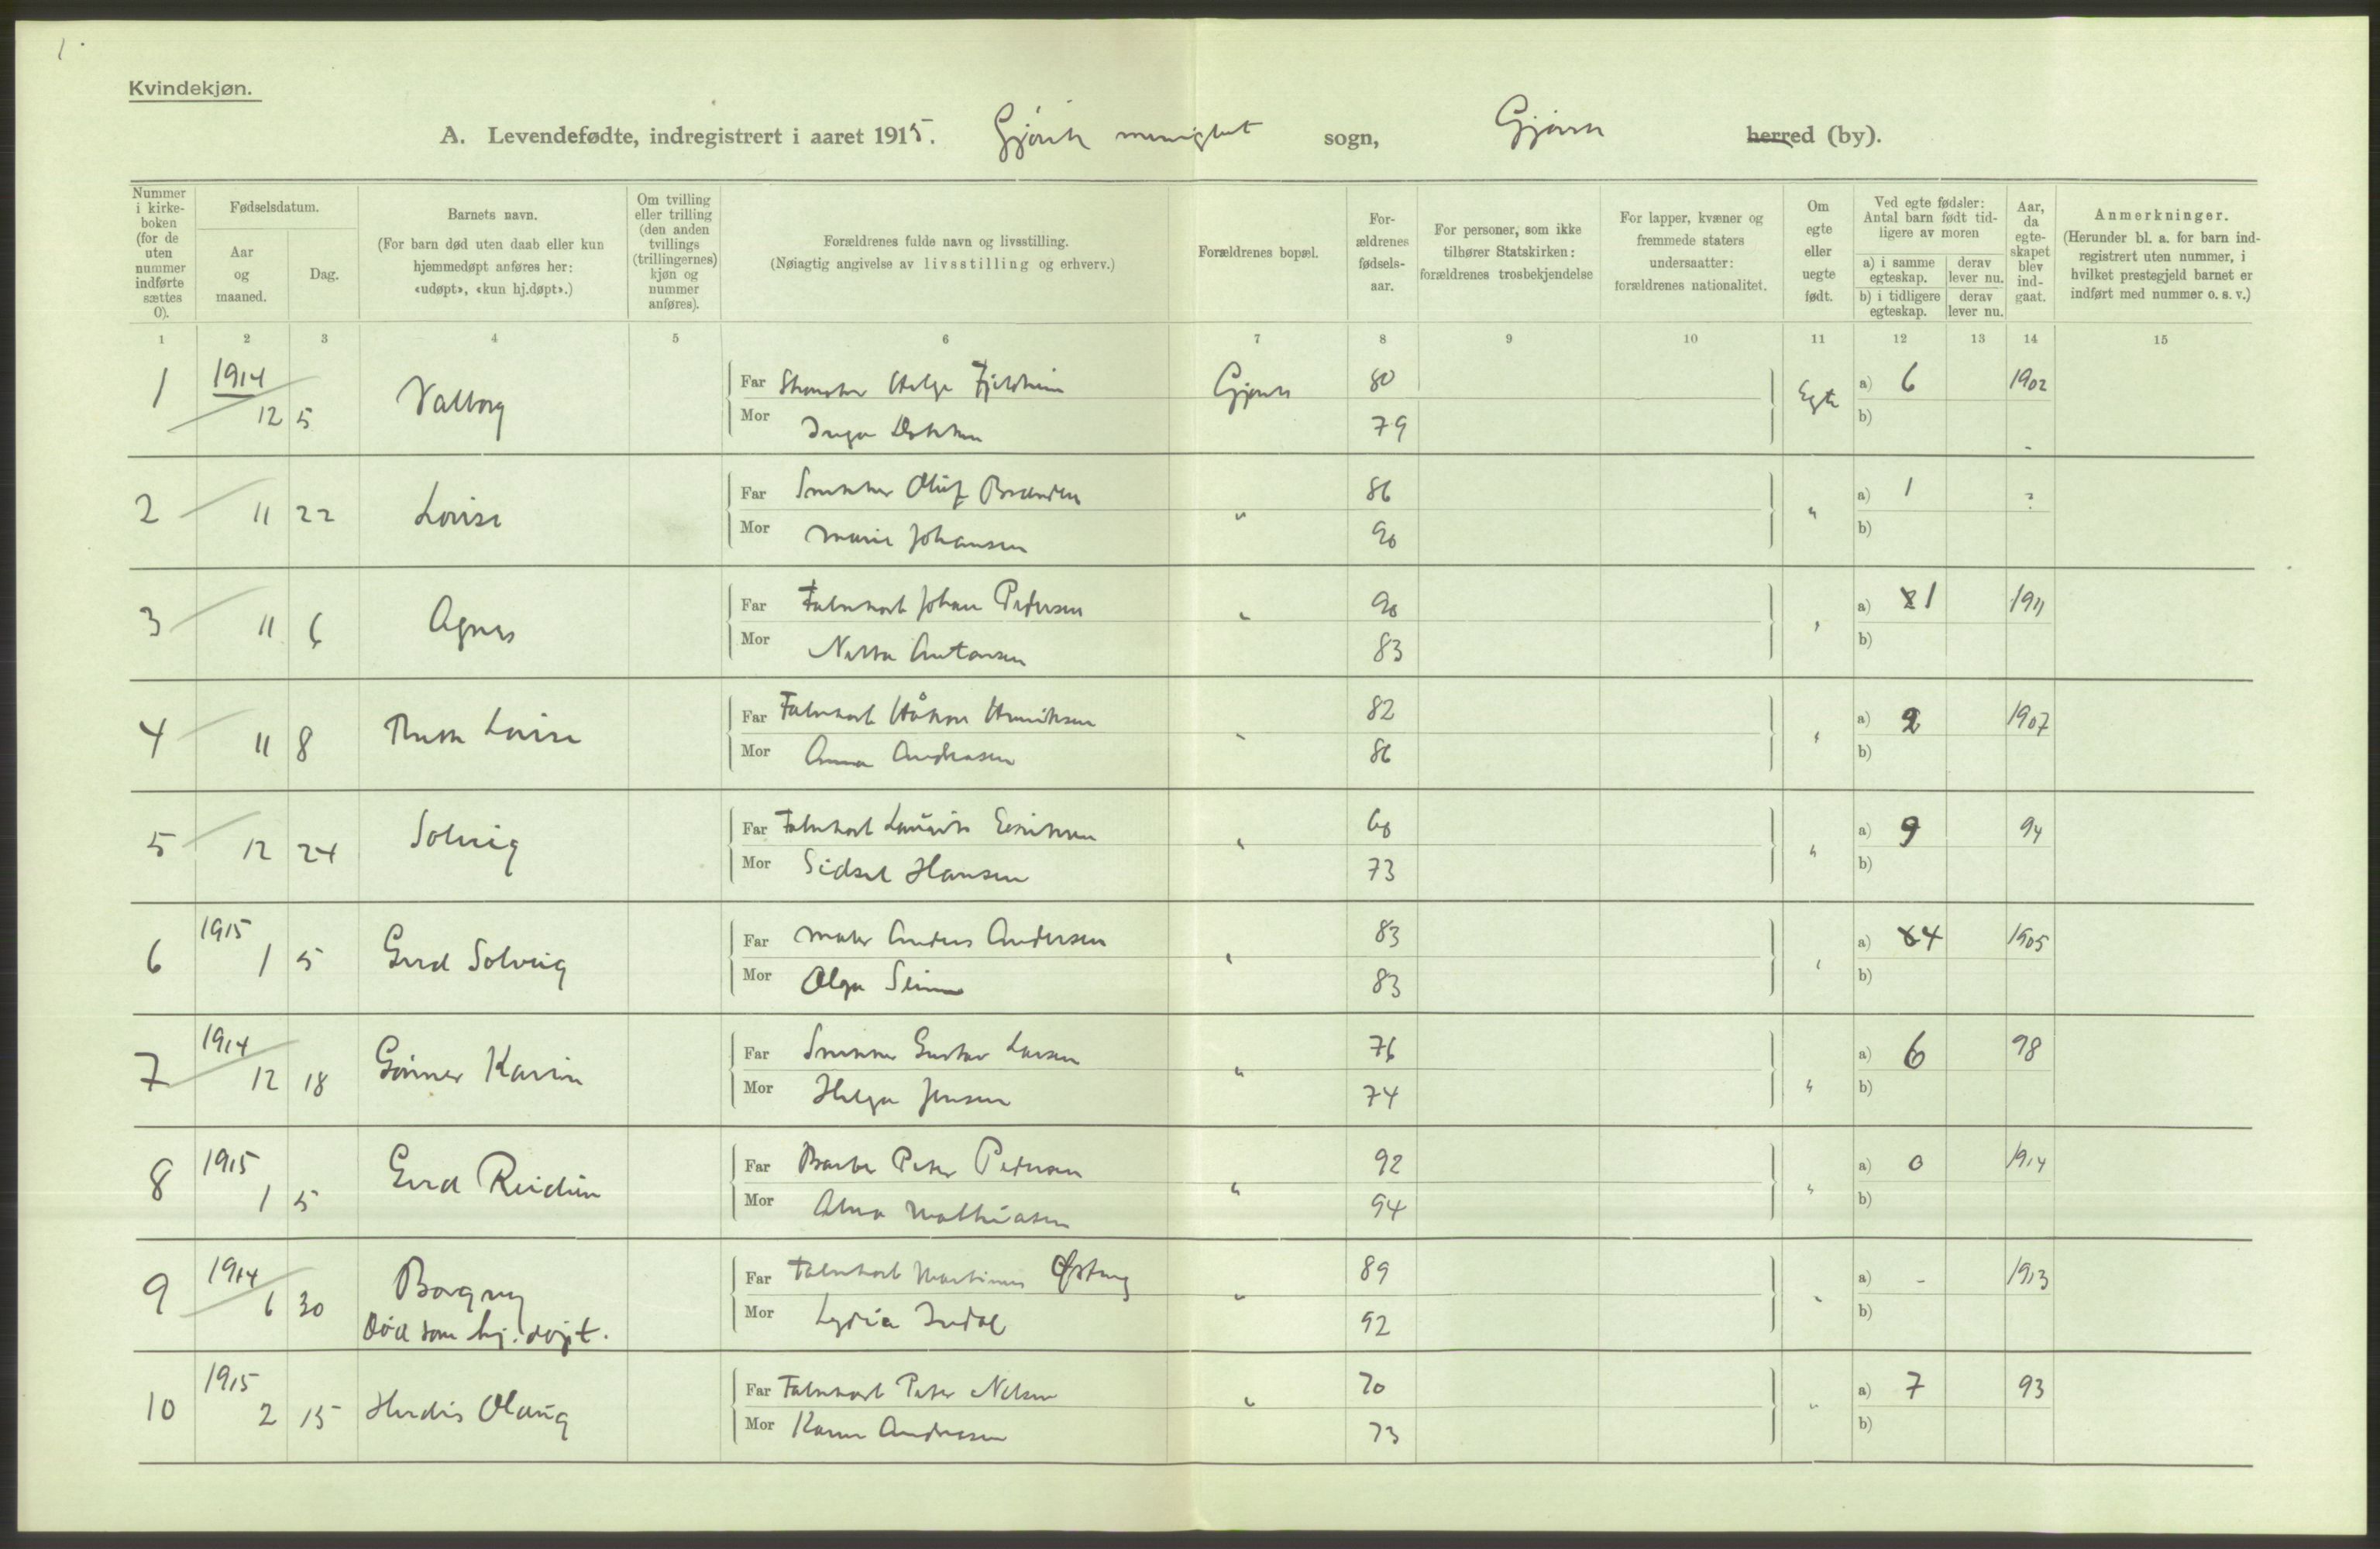 1.
Kvindekjøn.
A. Levendefødte, indregistrert i aaret 1915. Gjøvik menighet sogn, Gjøvik herred (by).
Nummer i kirke-boken (for de uten nummer indførte sættes 0).
Fødselsdatum.
Aar og maaned.
Dag.
Barnets navn.
(For barn død uten daab eller kun hjemmedøpt anføres her: «udøpt», «kun hj.døpt».)
Om tvilling eller trilling (den anden tvillings (trillingernes) kjøn og nummer anføres).
Forældrenes fulde navn og livsstilling.
(Nøiagtig angivelse av livsstilling og erhverv.)
Forældrenes bopæl.
For-ældrenes fødsels-aar.
For personer, som ikke tilhører Statskirken: forældrenes trosbekjendelse
For lapper, kvæner og fremmede staters undersaatter: forældrenes nationalitet.
Om egte eller uegte født.
Ved egte fødsler: Antal barn født tid-ligere av moren
a) i samme egteskap.
derav lever nu.
b) i tidligere egteskap.
derav lever nu.
Aar, da egte-skapet blev ind-gaat.
Anmerkninger.
(Herunder bl. a. for barn ind-registrert uten nummer, i hvilket prestegjeld barnet er indført med nummer o. s. v.)
1 2 3 4 5 6 7 8 9 10 11 12 13 14 15
1 1914 12 5 Valborg Far Helge Fjeldheim Gjøvik 80 Egte a) 6 1902
Mor Inga 79 b)
2 11 22 Lovise Far Snekker Oluf Brænden " 86 " a) 1 ?
Mor Marie Johansen 90 b)
3 11 6 Agnes Far Fabrikarb Johan Pedersen " 90 " a) 1 1911
Mor Netta Antonsen 83 b)
4 11 8 Ruth Lovise Far Fabrikarb Håkon Henriksen " 82 " a) 2 1907
Mor Anna Andreasen 86 b)
5 12 24 Solveig Far Fabrikarb Lauritz Eriksen " 68 " a) 9 94
Mor Sidsel Hansen 73 b)
6 1915 1 5 Gerd Solveig Far Maler Anders Andersen " 83 " a) 4 1905
Mor Olga 83 b)
7 1914 12 18 Karin Far Snekker Gustav Larsen " 76 " a) 6 98
Mor Helga Jensen 74 b)
8 1915 1 5 Gerd Reidun Far Barber Peter Pedersen " 92 " a) 0 1914
Mor Alma Mathiasen 94 b)
9 1914 6 30 Borgny Far Fabrikarb Martinus " 89 " a) - 1913
Død som hj.døpt. Mor Lydia Indal 92 b)
10 1915 2 15 Herdis Olaug Far Fabrikarb Peter Nilsen " 70 " a) 7 93
Mor Karen Andresen 73 b)